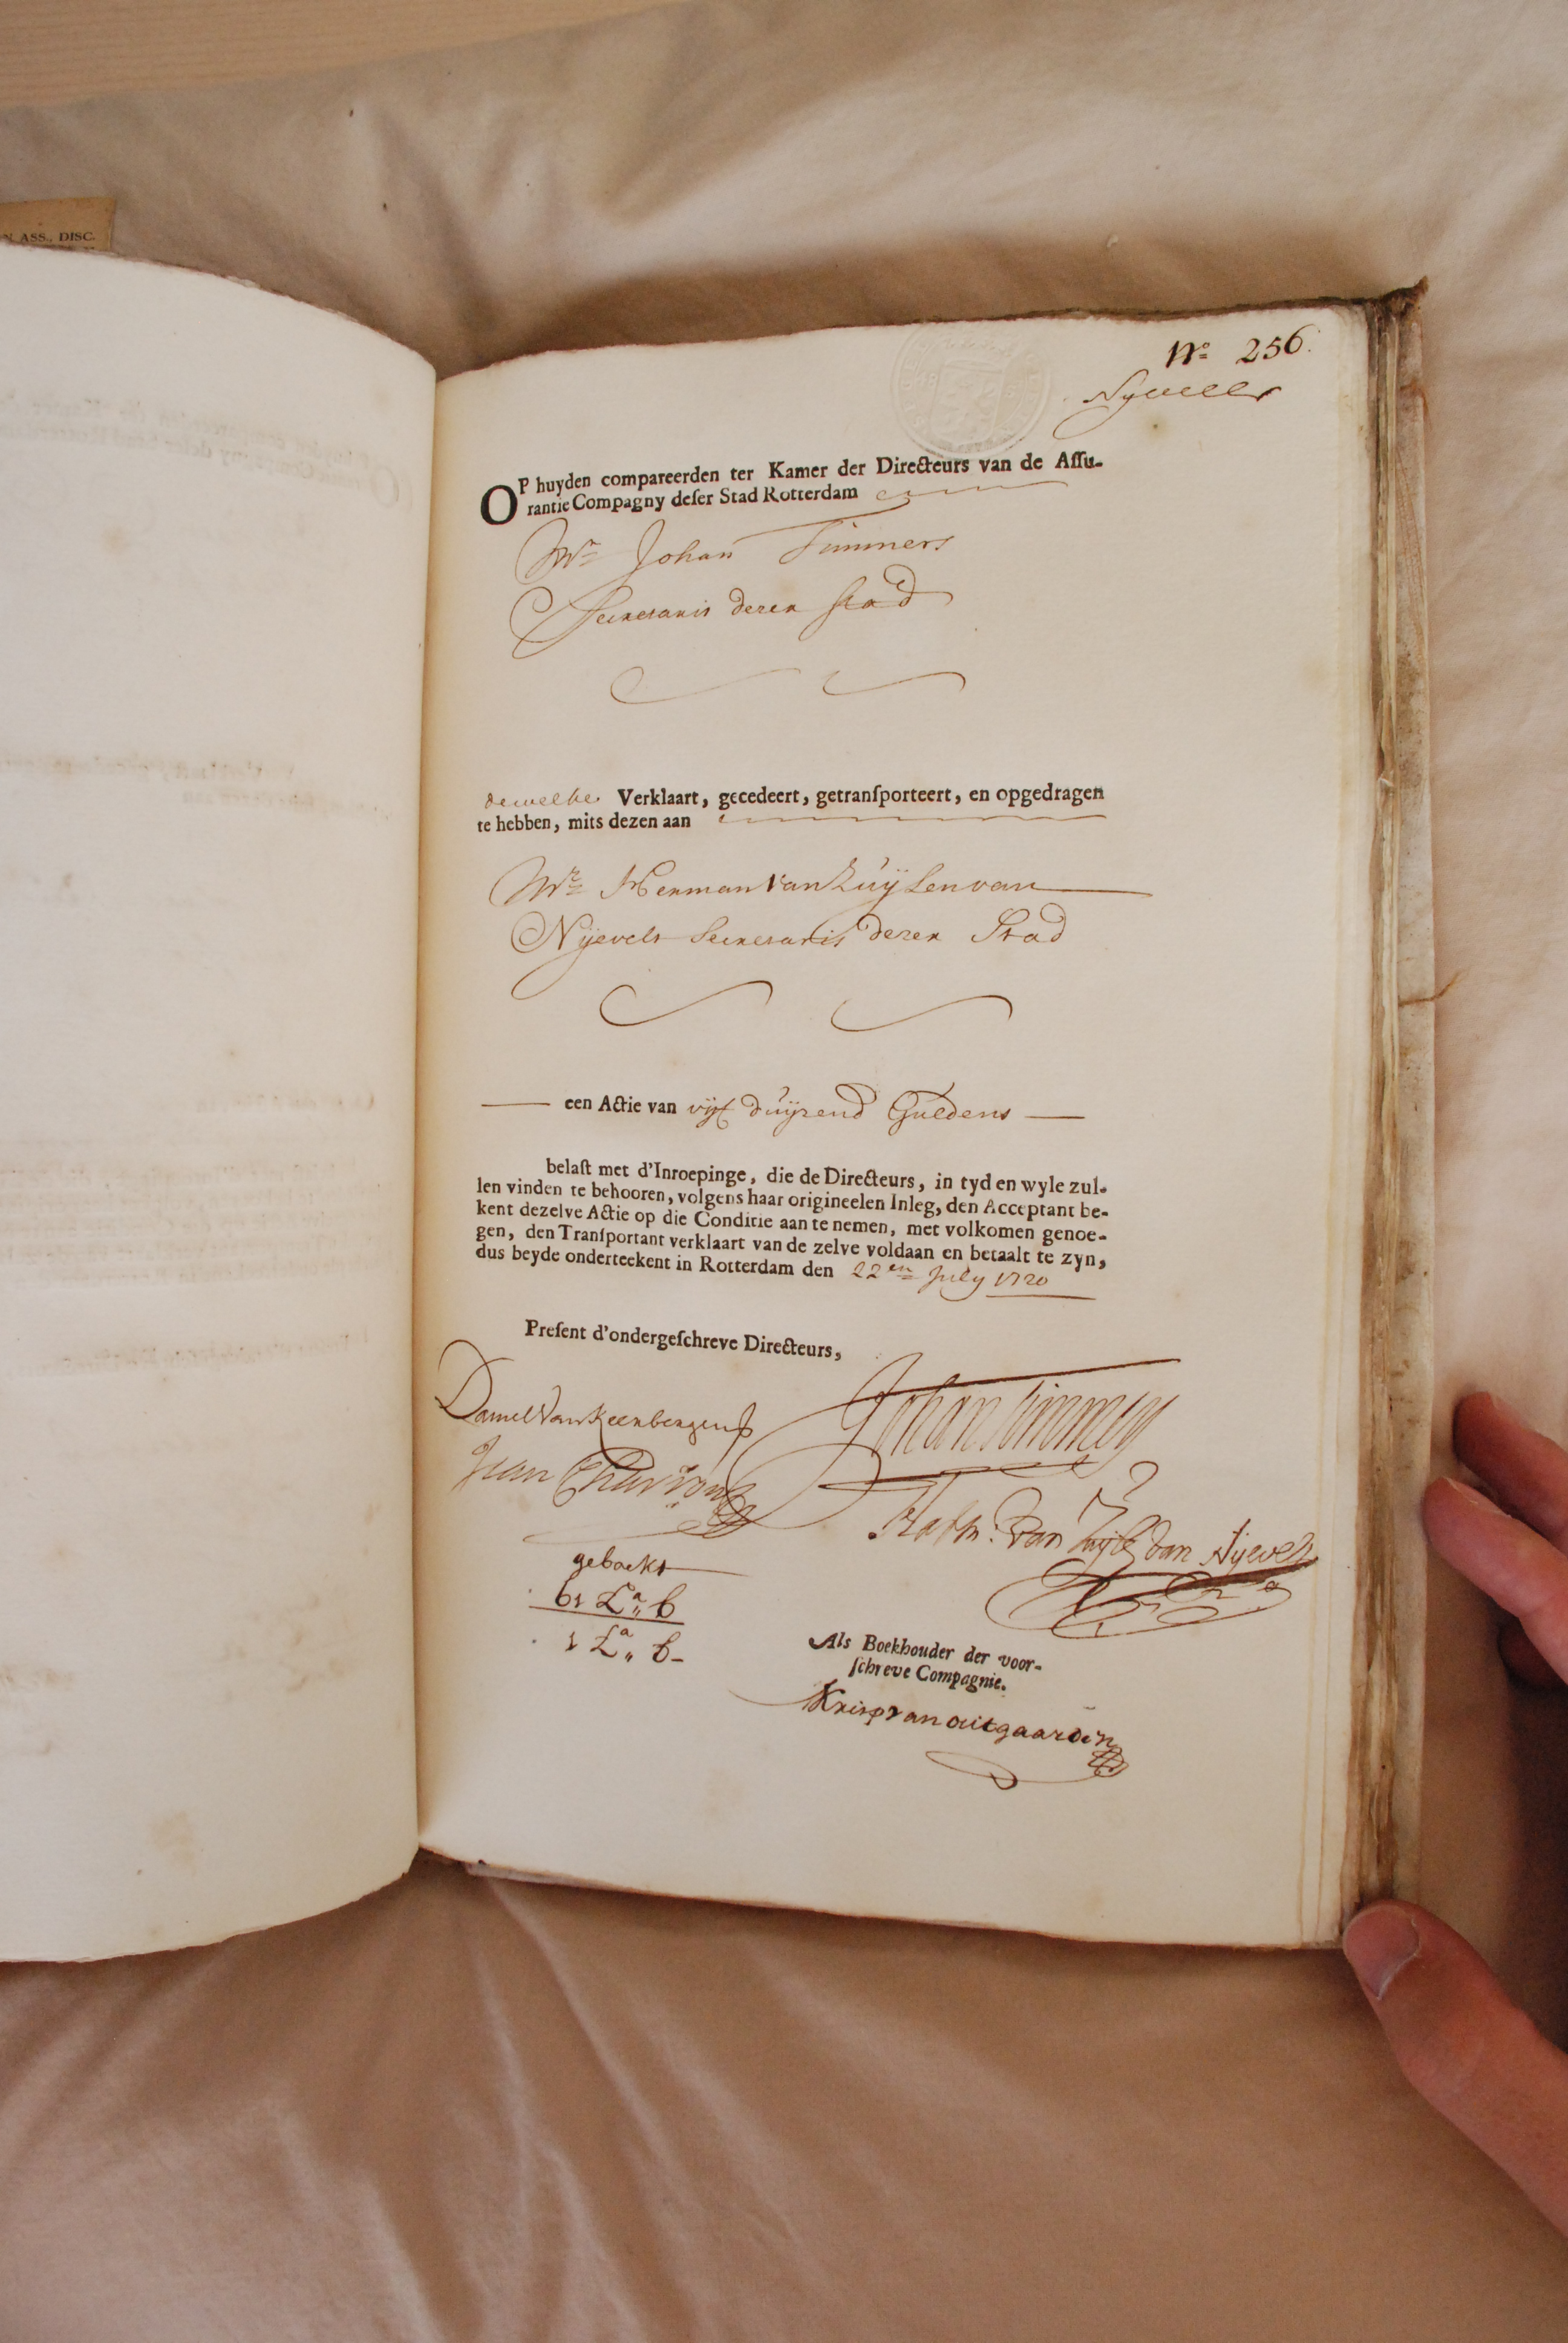 N ASS., DISC.
No 256.
Nyvelt
OP huyden compareerden ter Kamer der Directeurs van de Assu-
rantie Compagny deser Stad Rotterdam
Mr Johan Timmers
Secretaris dezer Stad
dewelke Verklaart, gecedeert, getransporteert, en opgedragen
te hebben, mits dezen aan
Mr Herman van Zuijlen van
Nijevelt Secretaris dezer Stad
een Actie van vijf duijzend Guldens
belast met d'Inroepinge, die de Directeurs, in tyd en wyle zul-
len vinden te behooren, volgens haar origineelen Inleg, den Acceptant be-
kent dezelve Actie op die Conditie aan te nemen, met volkomen genoe-
gen, den Transportant verklaart van de zelve voldaan en betaalt te zyn,
dus beyde onderteekent in Rotterdam den 22en July 1720
Present d'ondergeschreve Directeurs,
Johan Timmers
Daniel van Keenbergen
Jean
van Zuijl van Nijevelt
geboekt
61 La b
1 La b
Als Boekhouder der voor-
schreve Compagnie.
Krisp van Outgaarden